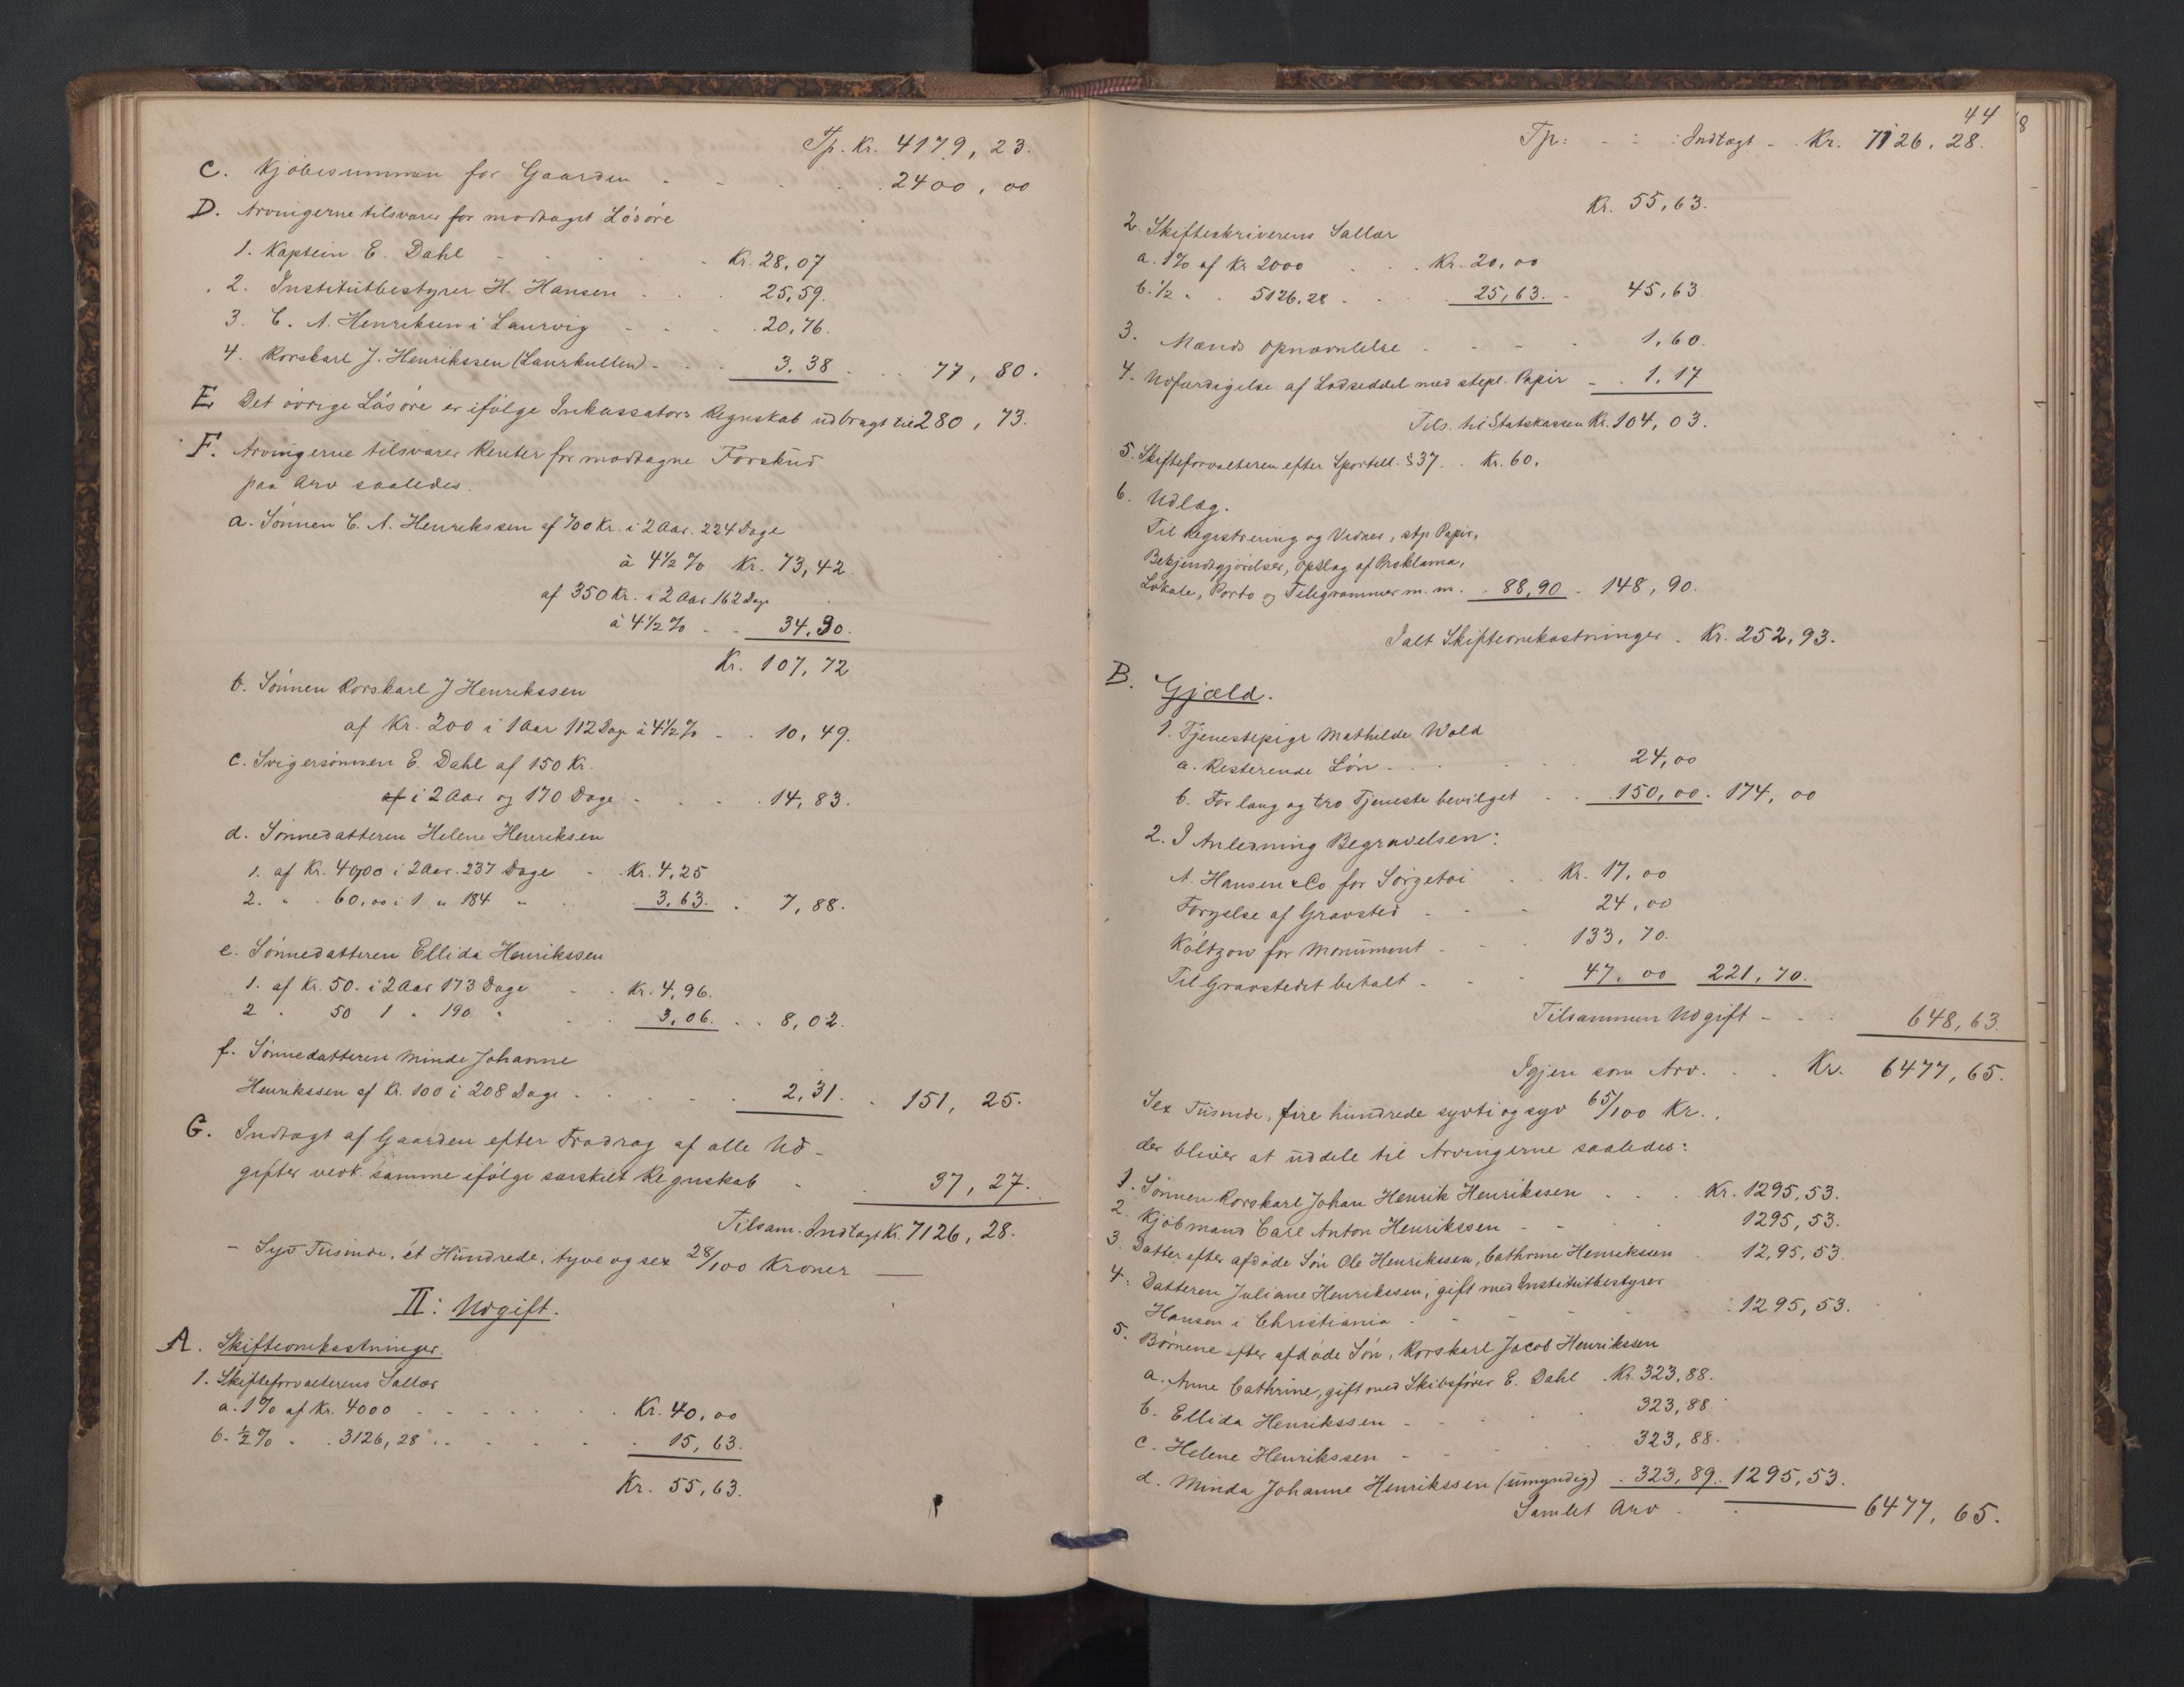 Tp. Kr. 4179, 23.
C. Kjöbesummen for Gaarden - - - - 2400, 00
D. Arvingerne tilsvarer for modtaget Lösöre
1. Kaptein E. Dahl - - - - Kr. 28,07
2. Institutbestyrer H. Hansen - - - 25,59.
3. C. A. Henriksen i Laurvig - - - 20,76.
4. Korskarl J. Henrikssen (Laurkullen) - - - 3,38 - - - 77, 80.
E. Det övrige Lösöre er ifölge Inkassators Regnskab udbragt til 280, 73.
F. Arvingerne tilsvarer Renter for modtagne Forskud
paa Arv saaledes.
a. Sönnen C. A. Henrikssen af 700 Kr. i 2 Aar. 224 Dage
à 4½ % Kr. 73,42.
af 350 Kr. i 2 Aar 162 Dage
à 4½ % - - 34,30.
Kr. 107,72
b. Sönnen Korskarl J Henrikssen
af Kr. 200 i 1 Aar 112 Dage à 4½ % - - 10,49.
c. Svigersönnen E. Dahl af 150 Kr.
af i 2 Aar og 170 Dage - - - 14,83.
d. Sönnedatteren Helene Henriksen
1. af Kr. 40,00 i 2 Aar. 237 Dage - Kr. 4,25
2. " . 60,00 i 1 " 184 " - 3,63. - 7,88.
e. Sönnedatteren Ellida Henrikssen
1. af Kr. 50. i 2 Aar 173 Dage - - Kr. 4,96.
2 . 50 1 " 190 " - - 3,06. - - 8,02.
f. Sönnedatteren Minde Johanne
Henrikssen af Kr. 100 i 208 Dage - - - - - 2,31. - 151, 25.
G. Indtægt af Gaarden efter Fradrag af alle Ud-
gifter vedk. samme ifölge særskilt Regnskab - - 37, 27.
Tilsam. Indtægt Kr. 7126, 28.
- Syv Tusinde, ét Hundrede, tyve og sex 28/100 Kroner —
II: Udgift.
A. Skifteomkostninger.
1. Skifteforvalterens Sallær
a. 1 % af Kr. 4000 - - - - - Kr. 40,00
b. ½ % - . 3126,28 - - - - - 15,63.
Kr. 55,63.
44
Tp: - - : Indtægt - Kr. 7126, 28.
Kr. 55,63.
2. Skifteskriverens Sallær
a. 1 % af Kr 2000 - - - Kr. 20,00
b. ½ " . 5126,28 - - - 25,63. - 45,63
3. Mænds Opnævnelse - - - - 1,60.
4. Udfærdigelse af Lodseddel med stepl. Papir - - 1,17
Tils. til Statskassen Kr. 104, 03.
5. Skifteforvalteren efter Sportell. § 37. - Kr. 60.
6. Udlæg.
Til Registrering og Vidner, stp Papir,
Bekjendtgjörelser, Opslag af Proklama,
Lokale, Porto og Telegrammer m. m. - 88,90 - 148, 90.
Ialt Skifteomkostninger - Kr. 252,93.
B. Gjæld.
1. Tjenestepige Mathilde Wold
a. Resterende Lön - - - - 24,00
b. For lang og tro Tjeneste bevilget - - 150,00. 174, 00
2. I Anledning Begravelsen:
A. Hansen & Co for Sörgetöi - Kr. 17,00
Fornyelse af Gravsted - - - 24,00
Költzow for Monument - - - 133, 70.
Til Gravstedet betalt - - - 47,00 221, 70.
Tilsammen Udgift - - - 648, 63.
Igjen som Arv. - - Kr. 6477, 65.
Sex Tusinde, fire hundrede syvti og syv 65/100 Kr.,
der bliver at uddele til Arvingerne saaledes:
1. Sönnen Korskarl Johan Henrik Henrikssen - - - Kr. 1295,53.
2. Kjöbmand Carl Anton Henrikssen - - - 1295,53.
3. Datter efter afdöde Sön Ole Henrikssen, Cathrine Henrikssen - 12,95,53.
4. Datteren Juliane Henrikssen, gift med Institutbestyrer
Hansen i Christiania - - - - : 1295,53.
5. Börnene efter afdöde Sön, Korskarl Jacob Henrikssen
a. Anne Cathrine, gift med Skibsförer E. Dahl Kr. 323,88.
b. Ellida Henrikssen - - - - 323,88.
c. Helene Henrikssen - - - - 323,88.
d. Minda Johanne Henrikssen (umyndig) - 323,89. 1295,53.
Samlet Arv - - 6477, 65.